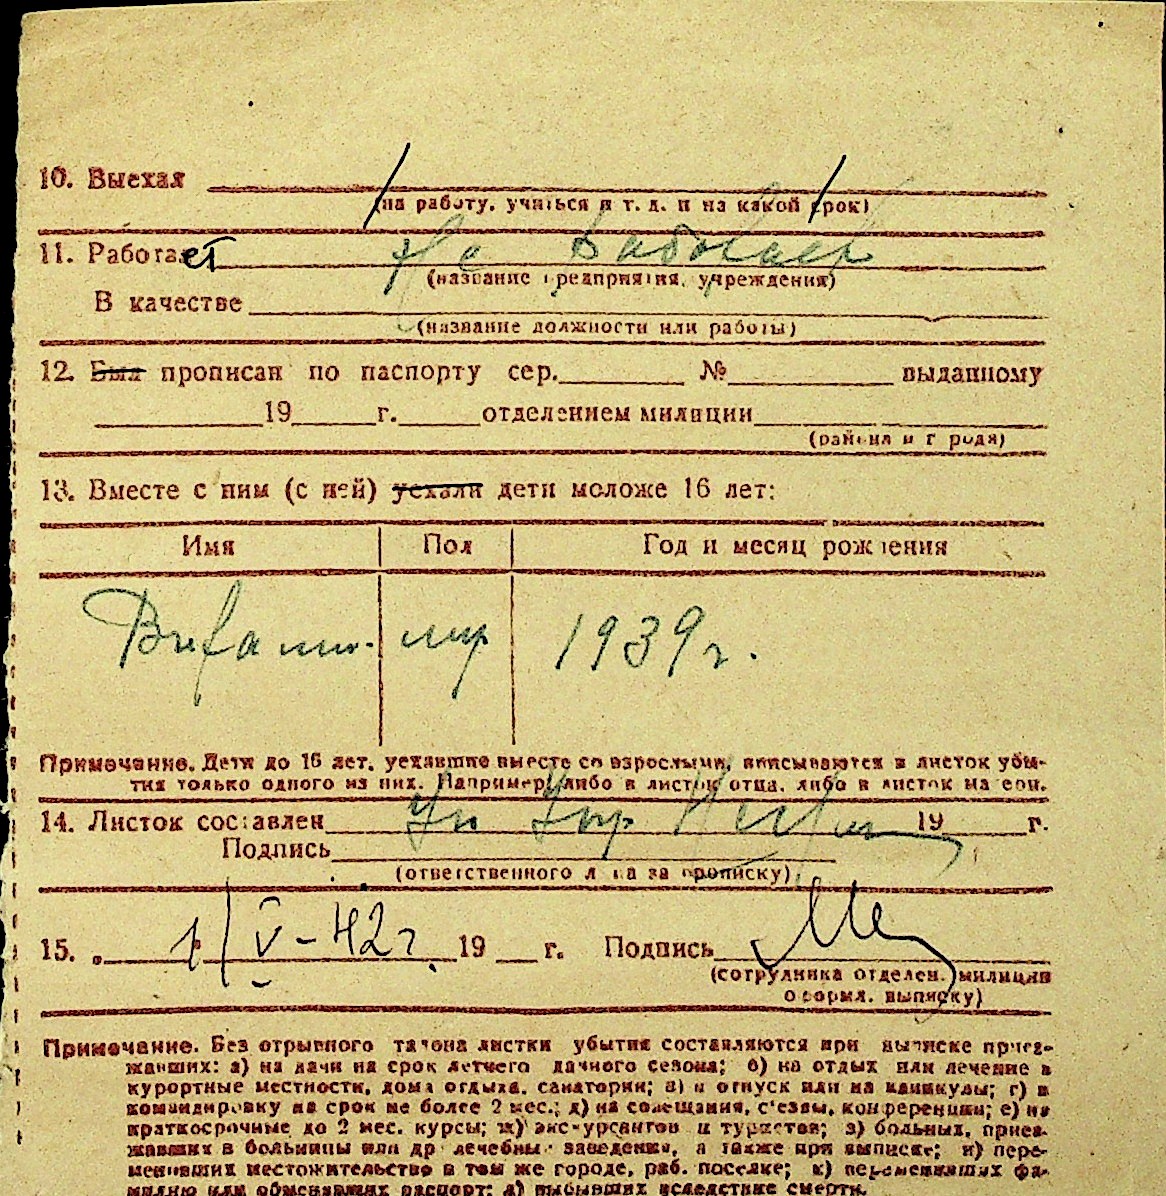 10. Выехал
(на работу, учиться и т. д. и на какой срок)
11. Работает
(название предприятия, учреждения)
В качестве
(название должности или работы)
12. Был прописан по паспорту сер. № выданному
19 г. отделением милиции
(района и города)
13. Вместе с ним (с ней) уехали дети моложе 16 лет:
Имя Пол Год и месяц рождения
1939 г.
Примечание. Дети до 16 лет, уехавшие вместе со взрослыми, вписываются в листок убы-
тия только одного из них. Например, либо в листок отца, либо в листок матери.
14. Листок составлен 19 г.
Подпись
(ответственного лица за прописку)
15. " 1/V-42 г. 19 г. Подпись
(сотрудника отделен. милиции
оформл. выписку)
Примечание. Без отрывного талона листки убытия составляются при выписке приез-
жавших: а) на дачи на срок летнего дачного сезона; б) на отдых или лечение в
курортные местности, дома отдыха, санатории; в) в отпуск или на каникулы; г) в
командировку на срок не более 2 мес.; д) на совещания, с'езды, конференции; е) на
краткосрочные до 2 мес. курсы; ж) экскурсантов и туристов; з) больных, приез-
жавших в больницы или др. лечебны заведения, а также при выписке; и) пере-
менивших местожительство в том же городе, раб. поселке; к) переменивших фа-
милию или обменявших паспорт; л) выбывших вследствие смерти.